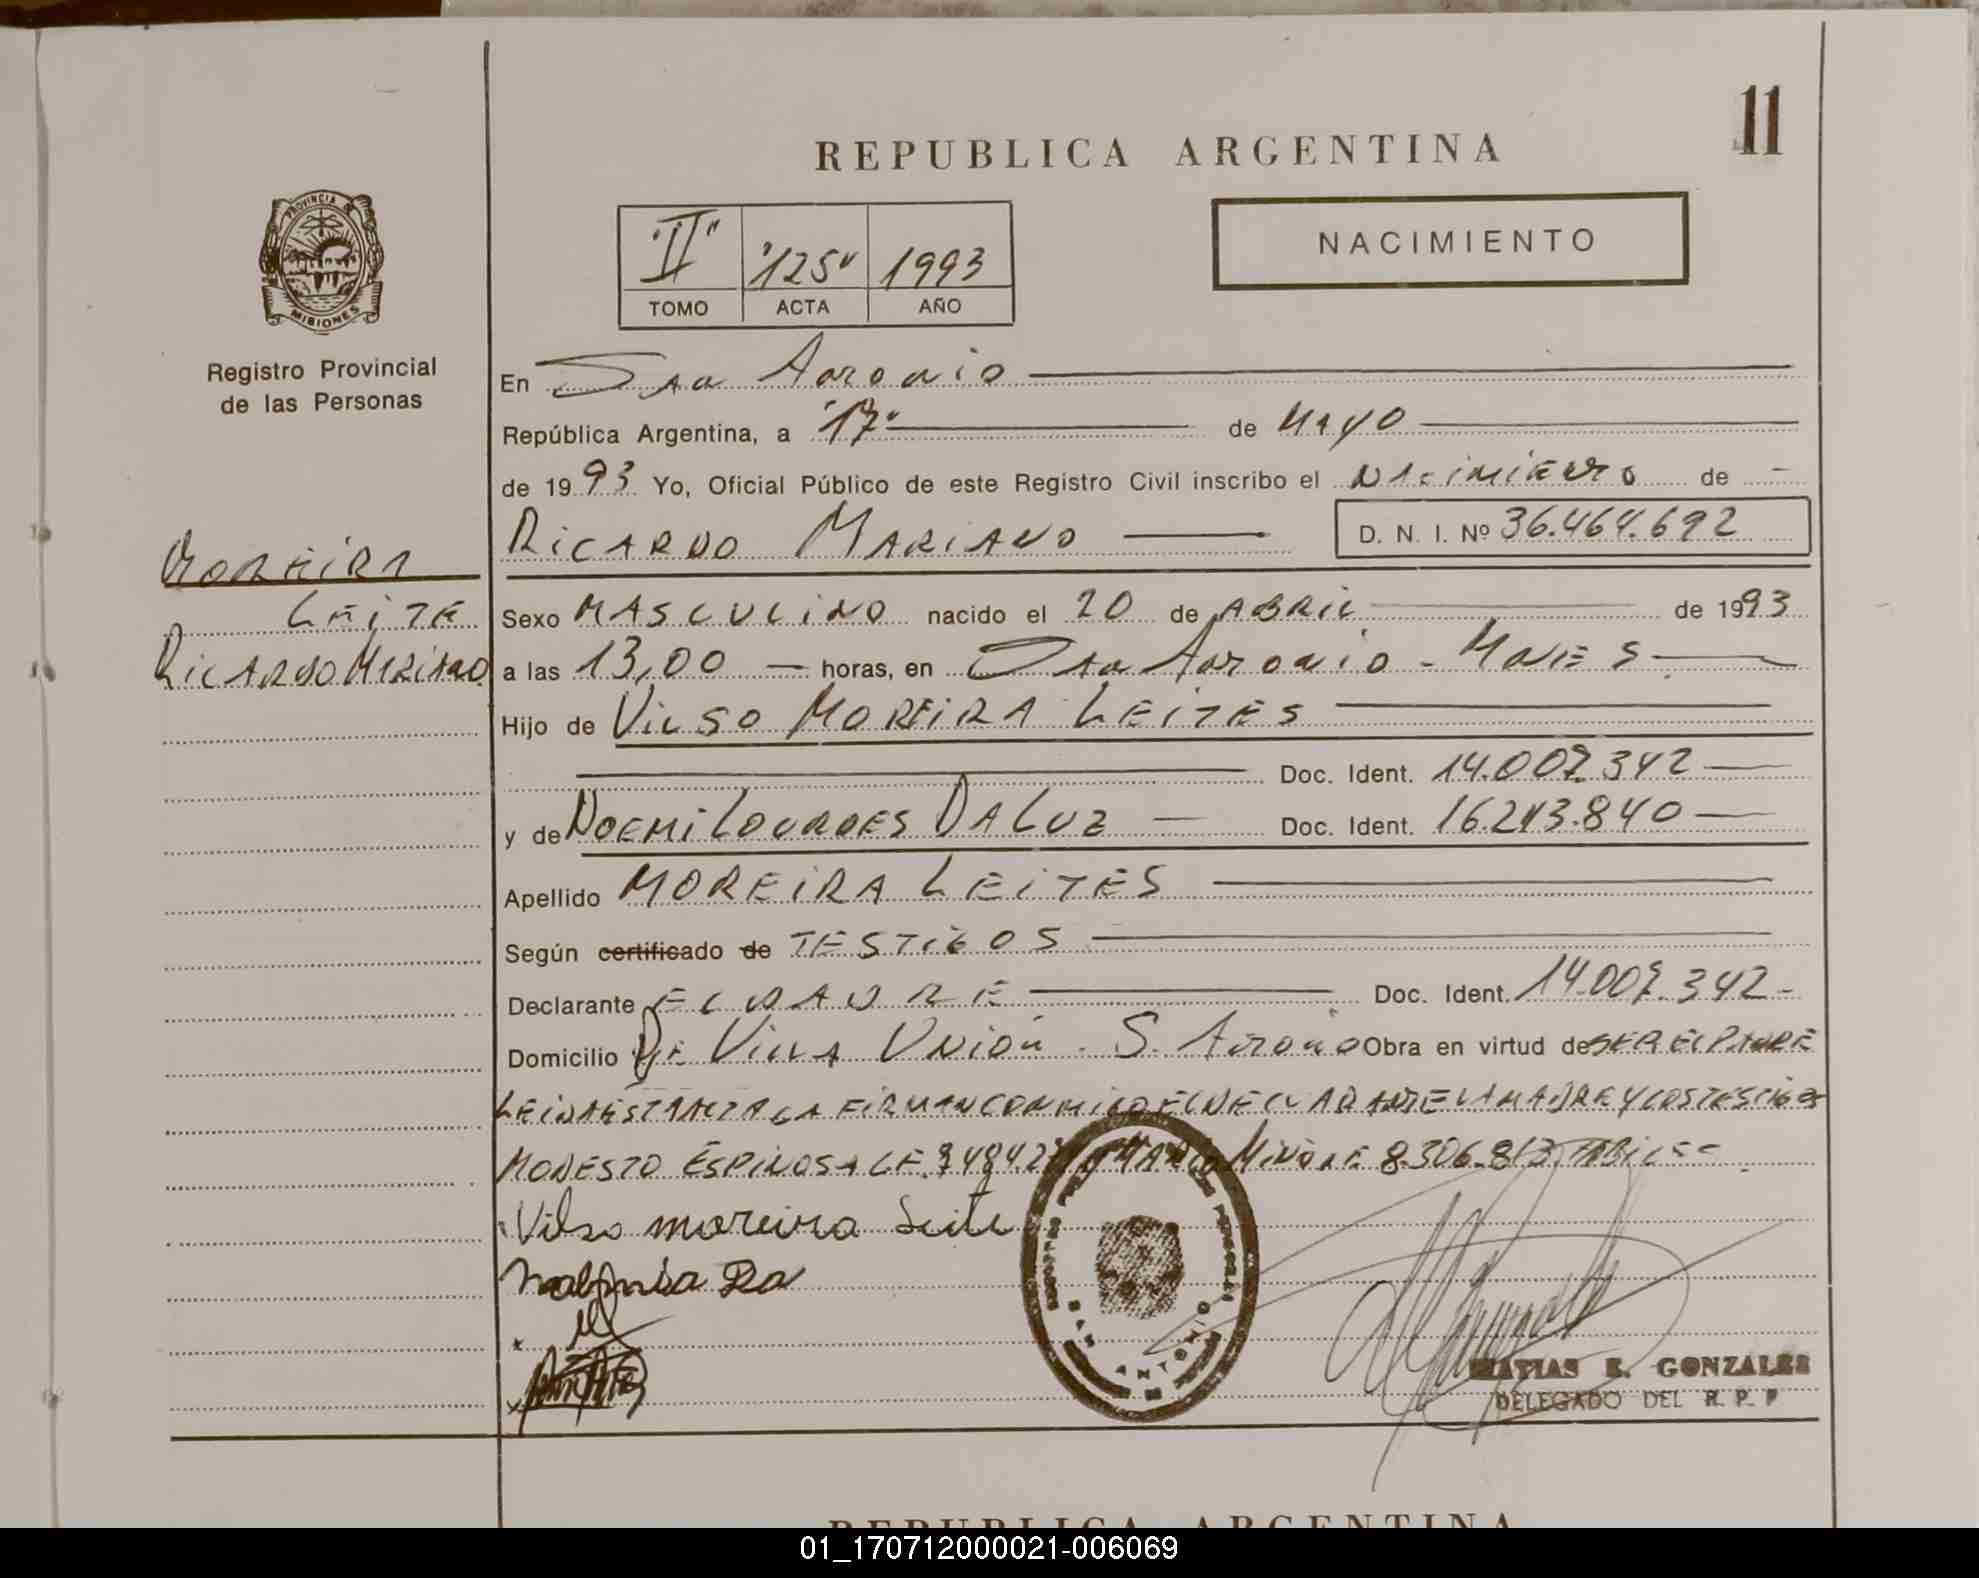 11
REPUBLICA ARGENTINA
PROVINCIA DE
MISIONES
Registro Provincial
de las Personas
"II" "125" 1993
TOMO ACTA AÑO
NACIMIENTO
En San Antonio
República Argentina, a "17" de MAYO
de 1993 Yo, Oficial Público de este Registro Civil inscribo el NACIMIENTO de
RICARDO MARIANO D. N. I. Nº 36.464.692
MOREIRA
LEITE
RICARDO MARIANO
Sexo MASCULINO nacido el 20 de ABRIL de 1993
a las 13,00 horas, en San Antonio - MNES
Hijo de VILSO MOREIRA LEITES
Doc. Ident. 14.007.342
y de NOEMI LOURDES DA LUZ Doc. Ident. 16.213.840
Apellido MOREIRA LEITES
Según certificado de TESTIGOS
Declarante EL PADRE Doc. Ident. 14.007.342
Domicilio DE VILLA UNIÓN - S. Antonio Obra en virtud de SER EL PADRE
LEIDA ESTA ACTA LA FIRMAN CONMIGO EL DECLARANTE LA MADRE Y LOS TESTIGOS
MODESTO ESPINOSA LE MARIO 8.306.813
Vilso moreira Leite
SAN ANTONIO
MATIAS E. GONZALEZ
DELEGADO DEL R. P. P
REPUBLICA ARGENTINA
01_170712000021-006069